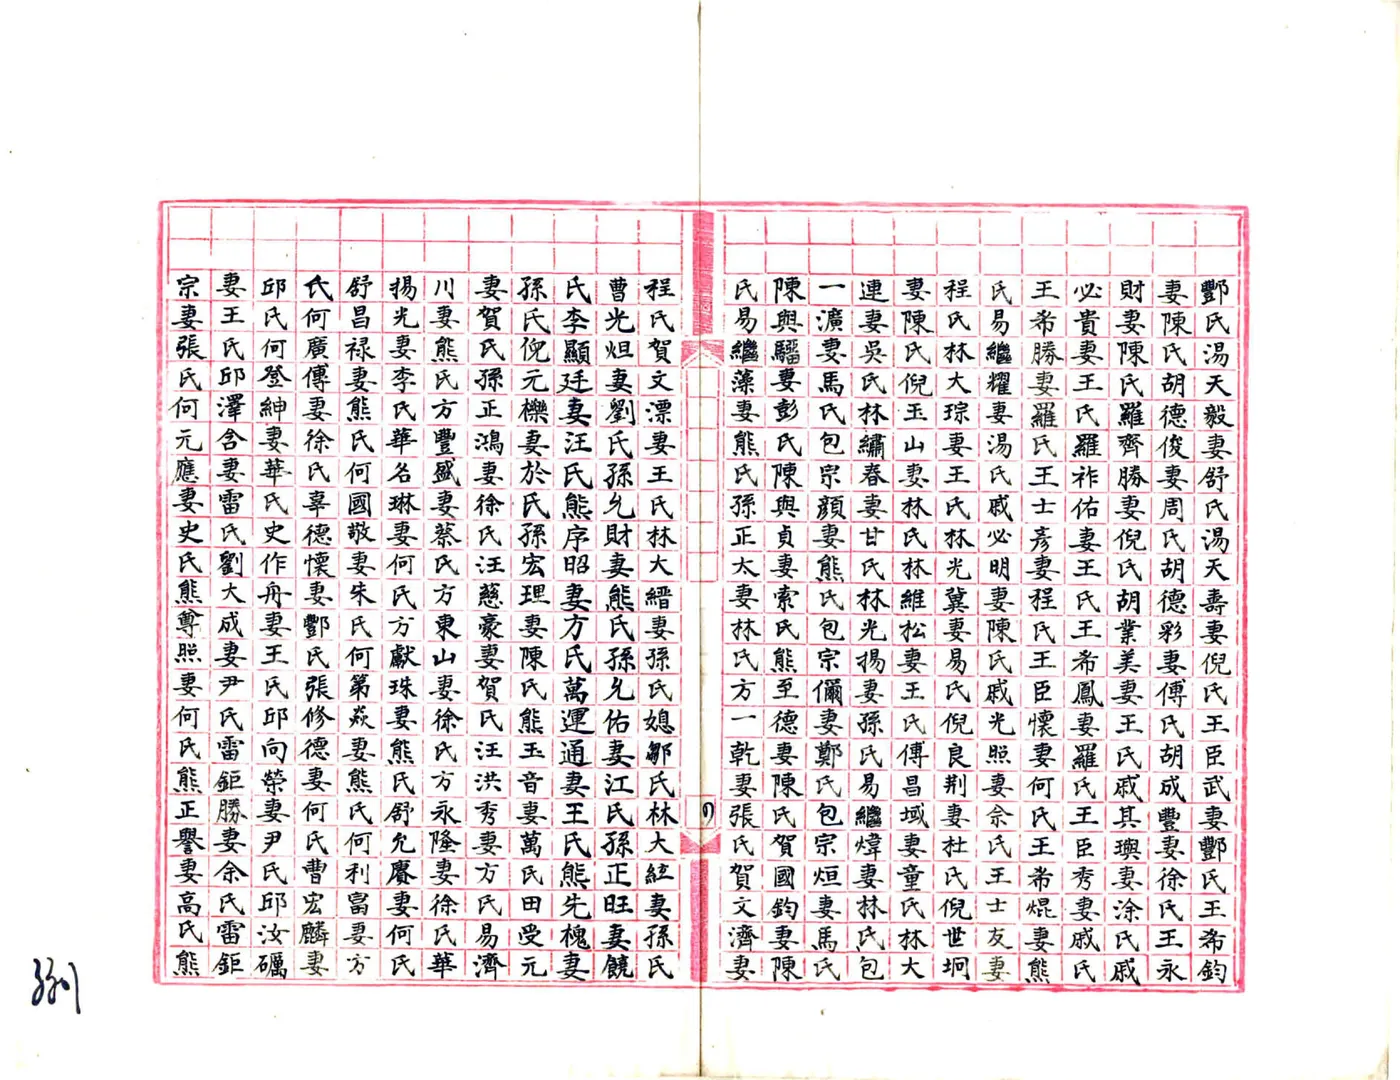 酆氏湯天毅妻舒氏湯天壽妻倪氏王臣武妻酆氏王希鈞
妻陳氏胡德俊妻周氏胡德彩妻傅氏胡成豐妻徐氏王永
財妻陳氏羅齊勝妻倪氏胡業美妻王氏戚其璵妻涂氏戚
必貴妻王氏羅祚佑妻王氏王希鳳妻羅氏王臣秀妻戚氏
王希勝妻羅氏王士彥妻程氏王臣懷妻何氏王希焜妻熊
氏易繼耀妻湯氏戚必明妻陳氏戚光照妻佘氏王士友妻
程氏林大琮妻王氏林光冀妻易氏倪良荆妻杜氏倪世坰
妻陳氏倪玉山妻林氏林維松妻王氏傅昌域妻童氏林大
連妻吳氏林繡春妻甘氏林光揚妻孫氏易繼煒妻林氏包
一濂妻馬氏包宗顔妻熊氏包宗儞妻鄭氏包宗烜妻馬氏
陳與驑妻彭氏陳與貞妻索氏熊至德妻陳氏賀國鈞妻陳
氏易繼藻妻熊氏孫正太妻林氏方一乾妻張氏賀文濟妻
程氏賀文漂妻王氏林大縉妻孫氏媳鄒氏林大紜妻孫氏
曹光炟妻劉氏孫允財妻熊氏孫允佑妻江氏孫正旺妻饒
氏李顯廷妻汪氏熊序昭妻方氏萬運通妻王氏熊先槐妻
孫氏倪元櫟妻於氏孫宏理妻陳氏熊玉音妻萬氏田受元
妻賀氏孫正鴻妻徐氏汪慈豪妻賀氏汪洪秀妻方氏易濟
川妻熊氏方豐盛妻蔡氏方東山妻徐氏方永隆妻徐氏華
揚光妻李氏華名琳妻何氏方獻珠妻熊氏舒允賡妻何氏
舒昌禄妻熊氏何國敬妻朱氏何第焱妻熊氏何利富妻方
氏何廣傳妻徐氏辜德懷妻酆氏張修德妻何氏曹宏麟妻
邱氏何登紳妻華氏史作舟妻王氏邱向榮妻尹氏邱汝礪
妻王氏邱澤含妻雷氏劉大成妻尹氏雷鉅勝妻余氏雷鉅
宗妻張氏何元應妻史氏熊尊照妻何氏熊正譽妻高氏熊